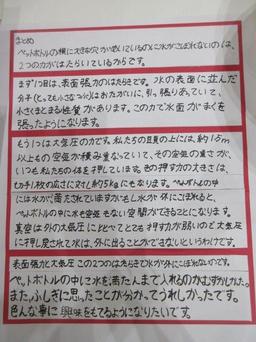 まとめ
ペットボトルの横に大きな穴があいているのに水がこぼれないのは、
2つの力がはたらいているからです。
まず1つ目は、表面張力のはたらきです。水の表面に並んだ
分子(とっても小さなつぶ)はおたがいに、引っ張りあっていて、
小さくまとまる性質があります。この力で水面がまくを
張ったようになります。
もう1つは大気圧の力です。私たちの頭の上には、約15m
以上もの空気が積み重なっていて、その空気の重さが、
いつも私たちの体を押しています。その押す力の大きさは、
切手1枚の広さに対し約5kgにもなります。ペットボトルの中
には水が、満たされていますがもし水が外にこぼれると、
ペットボトルの中に水も空気もない空間ができることになります。
真空は外の大気圧にとても押す力が弱いので大気圧
に押し戻されて水は、外に出ることができないというわけです。
表面張力と大気圧この2つのはたらきで水が外にこぼれないのです。
ペットボトルの中に水を満たんまで入れるのがむずかしかった。
また、ふしぎに思ったことが分かってうれしかったです。
色んな事に興味をもてるようになりたいです。